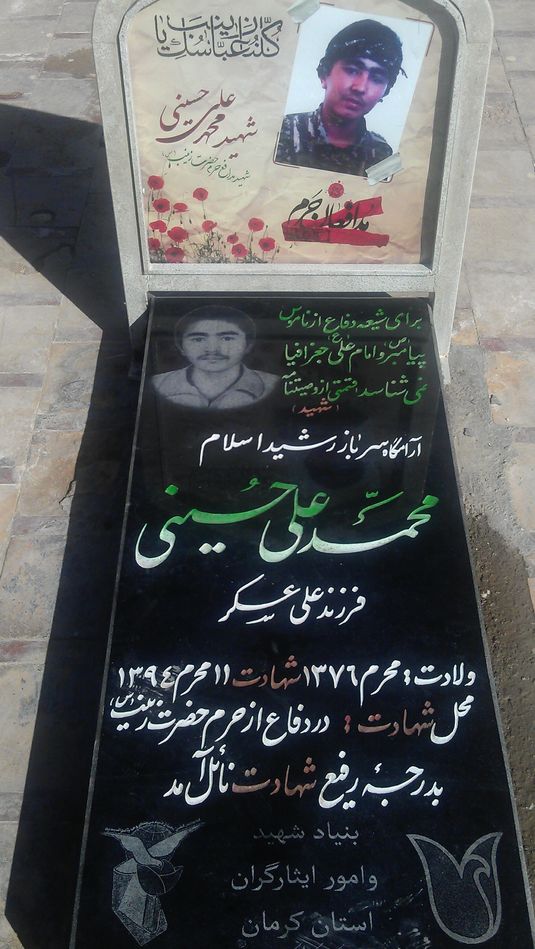 کلنا عباسک یا زینب
شهید محمد علی حسینی
شهید مدافع حرم حضرت زینب (س)
مدافعان حرم
برای شیعه دفاع از ناموس
پیامبر (ص) و امام علی (ع) جغرافیا
نمی شناسد قسمتی از وصیتنامه
(شهید)
آرامگاه سرباز رشید اسلام
محمد علی حسینی
فرزند علی عسکر
ولادت: محرم ۱۳۷۶ شهادت ۱۱ محرم ۱۳۹۴
محل شهادت: در دفاع از حرم حضرت زینب (س)
بدرجهٔ رفیع شهادت نائل آمد
بنیاد شهید
وامور ایثارگران
استان کرمان